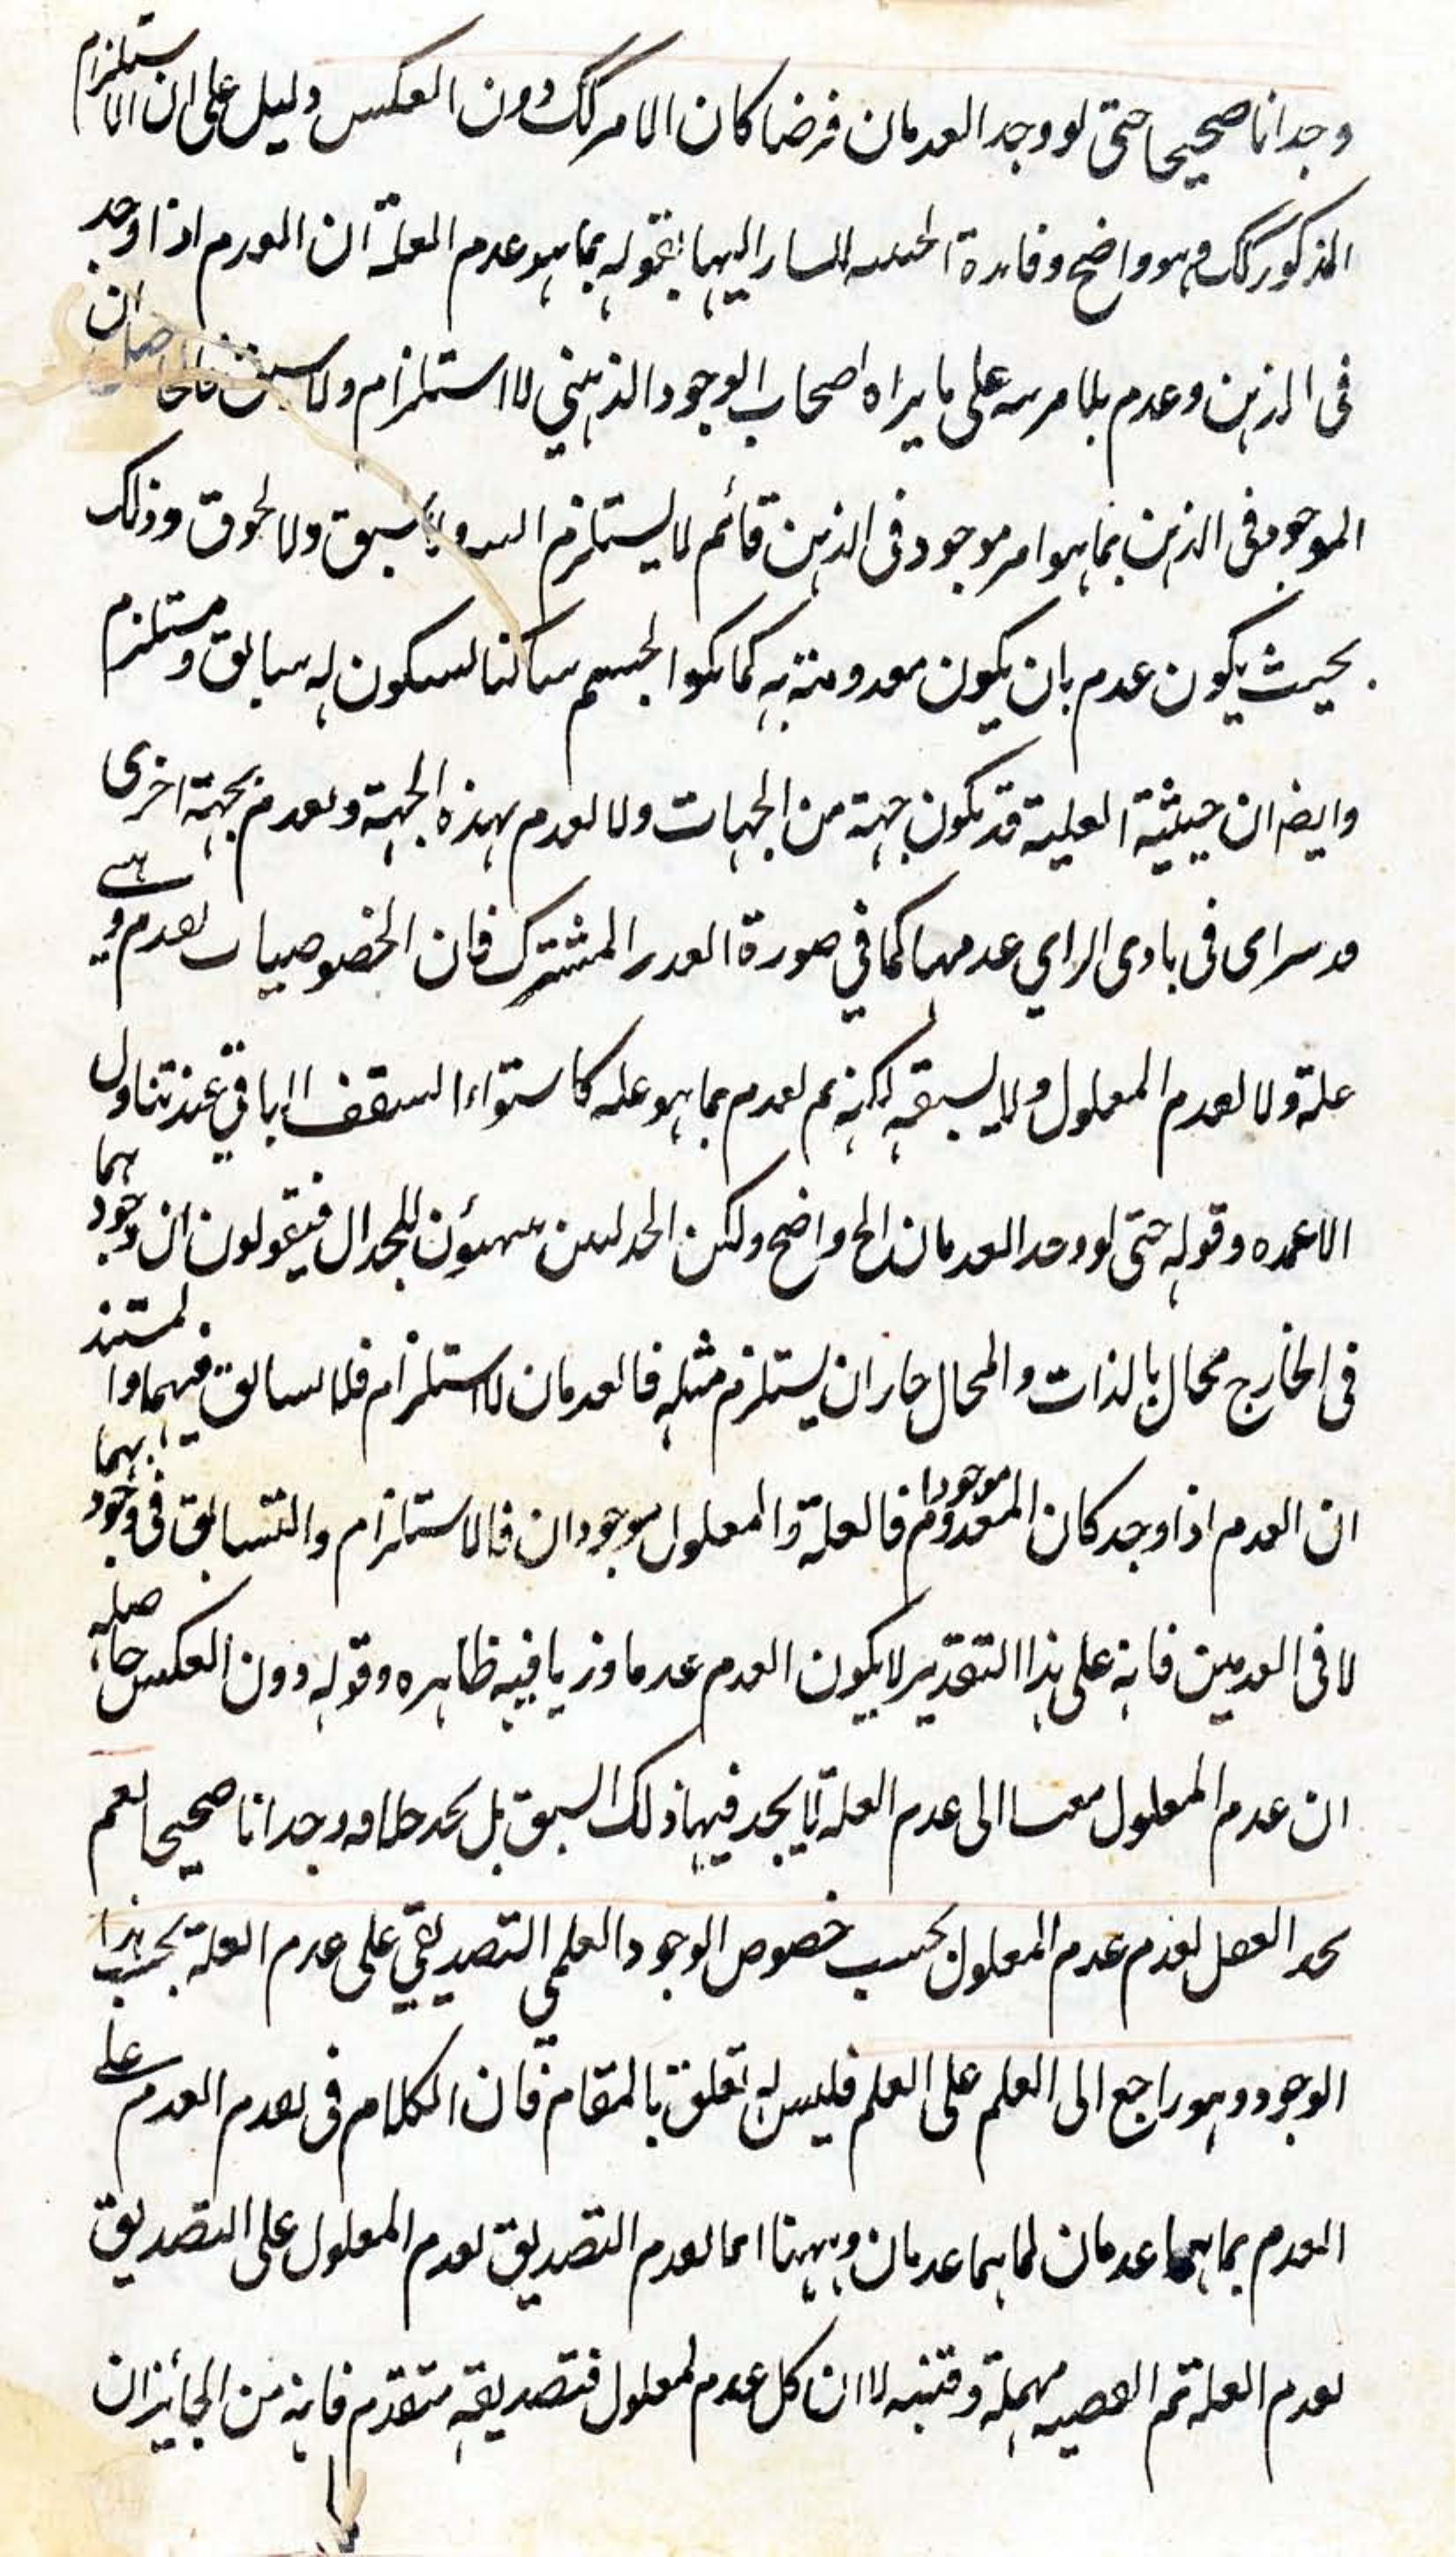 وجدانا صحيحا حتى لو وجد العدمان فرضا كان الامر كك دون العكس دليل على ان الاستلزام
المذكور كك وهو واضح وفائدة الحيثية المشار اليها بقوله بما هو عدم العلة ان العدم اذا وجد
فى الذهن وعدم بلا مرية على ما يراه اصحاب الوجود الذهني لا استلزام ولا سبق فالحاصل ان
الموجود فى الذهن بما هو امر موجود فى الذهن قائم لا يستلزم ولا سبق ولا لحوق وذلك
بحيث يكون عدم بان يكون معدومته به كما يكون الجسم ساكنا لسكون له سابق ومستلزم
وايضا ان حيثية العلية قد تكون جهة من الجهات ولا تعدم بهذه الجهة وتعدم بجهة اخرى
وقد يراى فى بادى الراي عدمها كما في صورة القدر المشترك فان الخصوصيات تعدم وهي
علة ولا تعدم المعلول ولا يسبقه لكنه لم تعدم بما هو علة كاستواء السقف الباقي عند تناول
الاعمدة وقوله حتى لو وجد العدمان الخ واضح ولكن الجدليين يتهيئون للجدال فيقولون ان وجودهما
فى الخارج محال بالذات والمحال جاز ان يستلزم مثله فالعدمان لا استلزام فلا تسابق فيهما والمستند
ان العدم اذا وجد كان المعدوم موجودا فالعلة والمعلول موجودان فالاستلزام والتسابق فى وجودهما
لا فى العدمين فانه على هذا التقدير لا يكون العدم عدما وزيافيه ظاهره وقوله دون العكس حاصله
ان عدم المعلول مقيسا الى عدم العلة لا يجد فيها ذلك السبق بل يجد خلافه وجدانا صحيحا نعم
يجد العقل تقدم عدم المعلول بحسب خصوص الوجود العلمي التصديقي على عدم العلة بحسب هذا
الوجود وهو راجع الى العلم على العلم فليس له تعلق بالمقام فان الكلام فى تقدم العدم على
العدم بما هما عدمان لما هما عدمان وههنا انما تقدم التصديق لعدم المعلول على التصديق
لعدم العلة ثم القضية مهملة وقتية لا ان كل عدم لمعلول فتصديقه متقدم فانه من الجائز ان